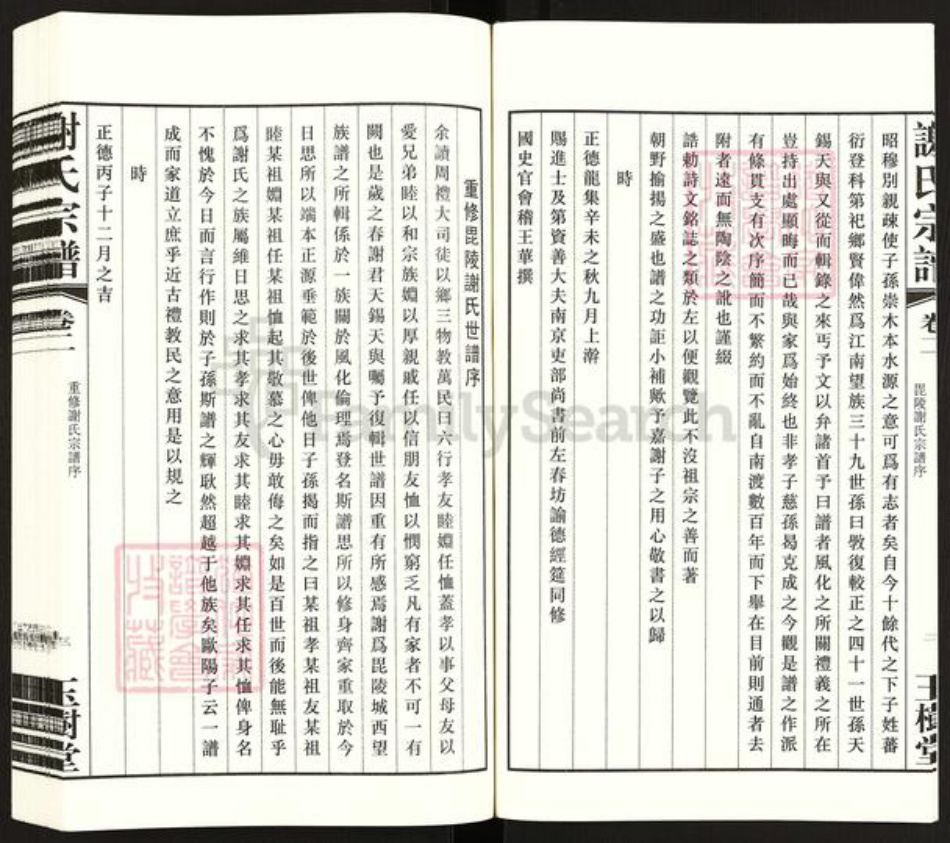 謝氏宗譜
卷二
毘陵謝氏宗譜序
玉樹堂
昭穆別親疎使子孫崇木本水源之意可爲有志者矣自今十餘代之下子姓蕃
衍登科第祀鄉賢偉然爲江南望族三十九世孫曰斆復較正之四十一世孫天
錫天與又從而輯錄之來丐予文以弁諸首予曰譜者風化之所關禮義之所在
豈持出處顯晦而已哉與家爲始終也非孝子慈孫曷克成之今觀是譜之作派
有條貫支有次序簡而不繁約而不亂自南渡數百年而下舉在目前則通者去
附者遠而無陶陰之訛也謹綴
誥勅詩文銘誌之類於左以便觀覽此不沒祖宗之善而著
朝野揄揚之盛也譜之功詎小補歟予嘉謝子之用心敬書之以歸
時
正德龍集辛未之秋九月上澣
賜進士及第資善大夫南京吏部尚書前左春坊諭德經筵同修
國史官會稽王華撰
重修毘陵謝氏世譜序
余讀周禮大司徒以鄉三物教萬民曰六行孝友睦婣任恤蓋孝以事父母友以
愛兄弟睦以和宗族婣以厚親戚任以信朋友恤以憫窮乏凡有家者不可一有
闕也是歲之春謝君天錫天與囑予復輯世譜因重有所感焉謝爲毘陵城西望
族譜之所輯係於一族關於風化倫理焉登名斯譜思所以修身齊家重取於今
日思所以端本正源垂範於後世俾他日子孫揭而指之曰某祖孝某祖友某祖
睦某祖婣某祖任某祖恤起其敬慕之心毋敢侮之矣如是百世而後能無恥乎
爲謝氏之族屬維日思之求其孝求其友求其睦求其婣求其任求其恤俾身名
不愧於今日而言行作則於子孫斯譜之輝耿然超越于他族矣歐陽子云一譜
成而家道立庶乎近古禮教民之意用是以規之
時
正德丙子十二月之吉
謝氏宗譜
卷二
重修謝氏宗譜序
玉樹堂
FamilySearch